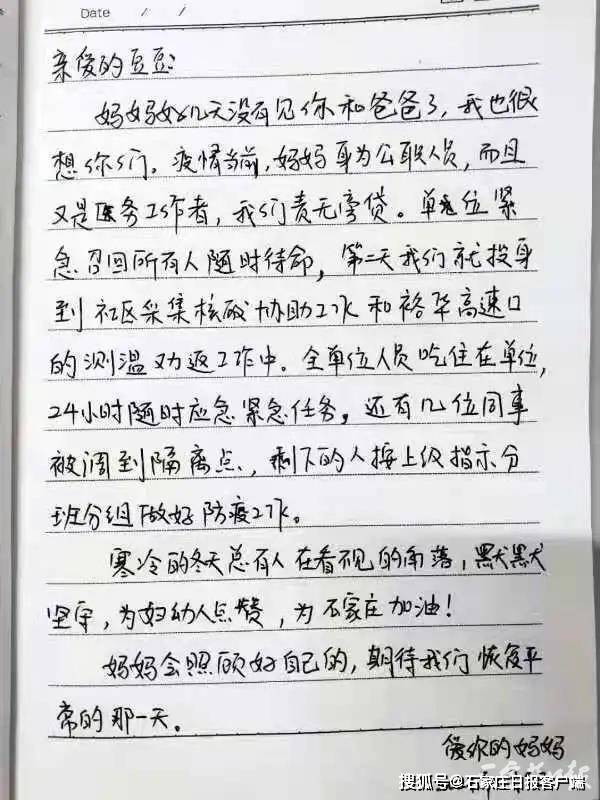 Date / /
亲爱的豆豆：
妈妈好几天没有见你和爸爸了，我也很
想你们。疫情当前，妈妈身为公职人员，而且
又是医务工作者，我们责无旁贷。单位紧
急召回所有人随时待命，第二天我们就投身
到社区采集核酸协助工作和裕华高速口
的测温劝返工作中。全单位人员吃住在单位，
24小时随时应急紧急任务，还有几位同事
被调到隔离点，剩下的人按上级指示分
班分组做好防疫工作。
寒冷的冬天总有人在看不见的角落，默默
坚守，为妇幼人点赞，为石家庄加油！
妈妈会照顾好自己的，期待我们恢复平
常的那一天。
爱你的妈妈
搜狐号@石家庄日报客户端